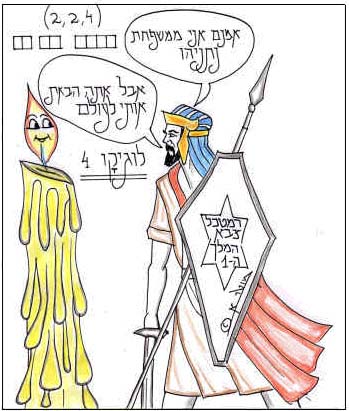 (2,2,4)
אמנם אני ממשפחת
נתניהו
אבל אתה הבאת
אותי לעולם
לוגיקו 4
רמטכל
צבא
המלך
ה-1
©